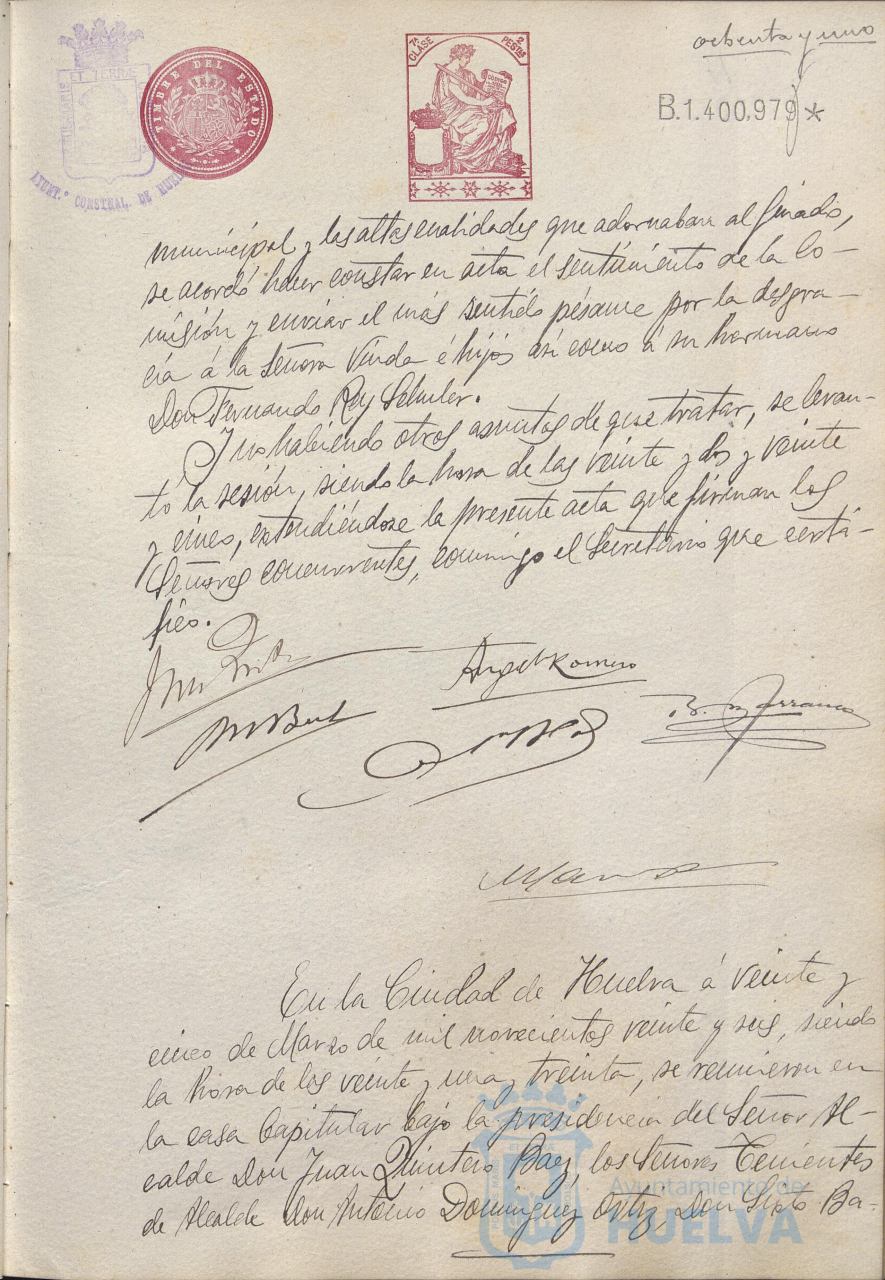 ochenta y uno
PORTUS MARIS ET TERRAE CUSTODIA
AYUNT.º CONSTNAL. DE HUELVA
TIMBRE DEL ESTADO
7ª CLASE 2 PESTAS
B.1.400.979 *
municipal y las altas cualidades que adornaban al finado,
se acordó hacer constar en acta el sentimiento de la Co-
misión y enviar el más sentido pésame por la desgra-
cia á la Señora Viuda é hijos así como á su hermano
Don Fernando Rey Schuler.
Y no habiendo otros asuntos de que tratar, se levan-
tó la sesión, siendo la hora de las veinte y dos y veinte
y cinco, extendiéndose la presente acta que firman los
Señores concurrentes, conmigo el Secretario que certi-
fico.
Angel Romero
B. Barranco
En la Ciudad de Huelva á veinte y
cinco de Marzo de mil novecientos veinte y seis, siendo
la hora de las veinte y una y treinta, se reunieron en
la casa Capitular bajo la presidencia del Señor Al-
calde Don Juan Quintero Baez, los Señores Tenientes
de Alcalde Don Antonio Dominguez Ortiz, Don Sixto Ba-
Ayuntamiento de
HUELVA